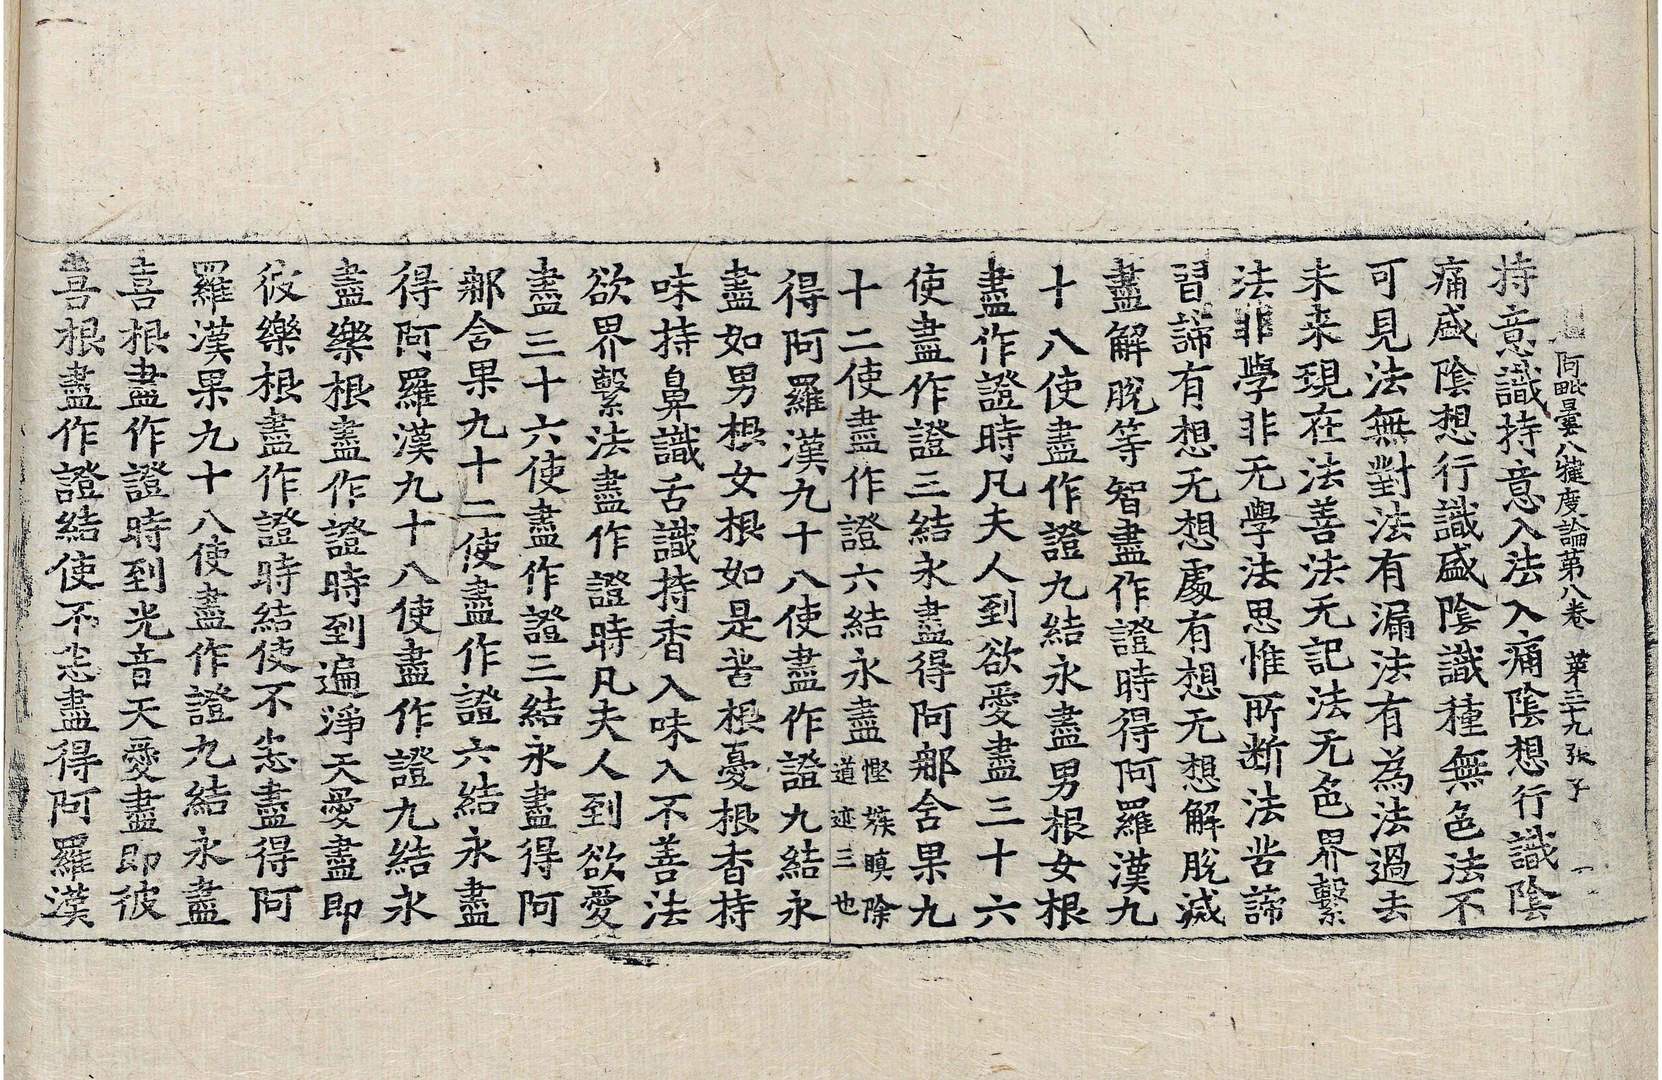 阿毗曇八犍度論第八卷 第三十九張 子
持意識持意入法入痛陰想行識陰
痛盛陰想行識盛陰識種無色法不
可見法無對法有漏法有為法過去
未来現在法善法无記法无色界繫
法非學非无學法思惟所断法苦諦
習諦有想无想處有想无想解脫滅
盡解脫等智盡作證時得阿羅漢九
十八使盡作證九結永盡男根女根
盡作證時凡夫人到欲愛盡三十六
使盡作證三結永盡得阿那含果九
十二使盡作證六結永盡慳嫉瞋除道迹三也
得阿羅漢九十八使盡作證九結永
盡如男根女根如是苦根憂根香持
味持鼻識舌識持香入味入不善法
欲界繫法盡作證時凡夫人到欲愛
盡三十六使盡作證三結永盡得阿
那含果九十二使盡作證六結永盡
得阿羅漢九十八使盡作證九結永
盡樂根盡作證時到遍淨天愛盡即
彼樂根盡作證時結使不忘盡得阿
羅漢果九十八使盡作證九結永盡
喜根盡作證時到光音天愛盡即彼
喜根盡作證結使不忘盡得阿羅漢